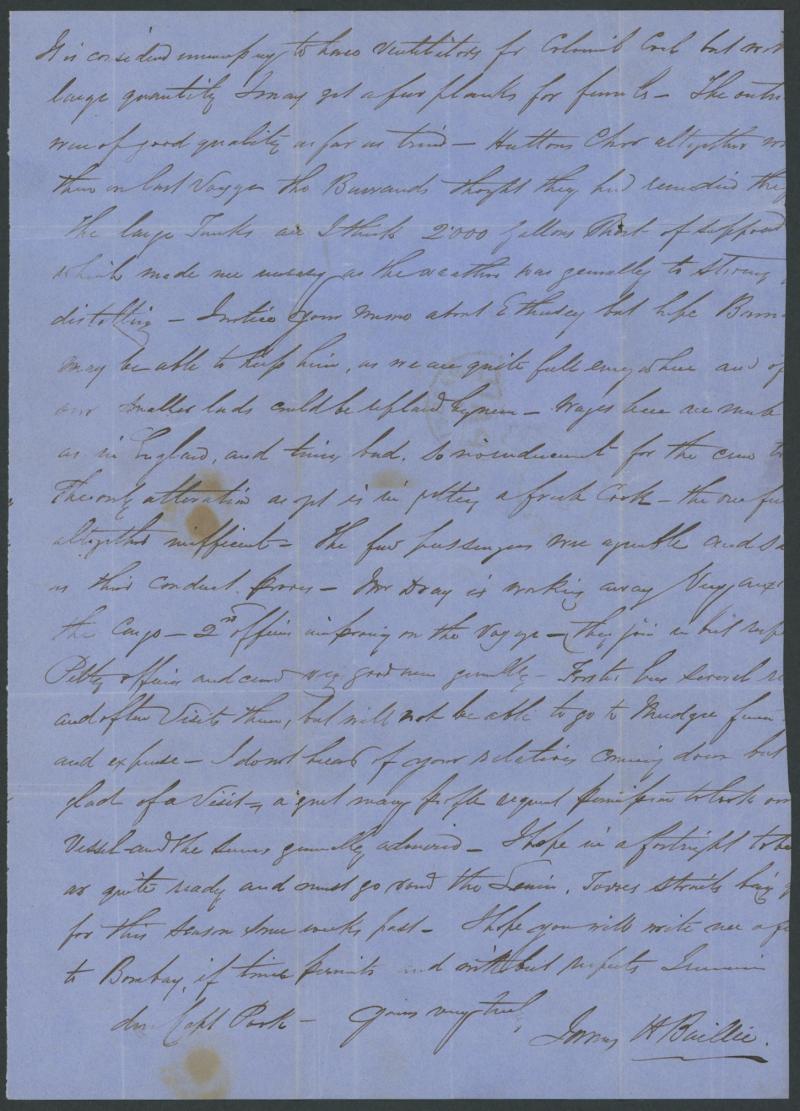 It is considered unnecessary to have Ventilators for Colonial Coal but with
large quantity I may get a few planks for funnels — The
were of good quality as far as tried — Huttons altogether
than on last Voyage tho Burrands thought they had remedied
The large Tanks are I think 2000 Gallons Short of supposed
which made me uneasy as the weather was generally to strong
distilling — I notice your memo about but hope
may be able to keep him, as we are quite full everywhere and
our smaller lads could be replaced by men — Wages here are much
as in England, and times bad. So no inducement for the crew to
The only alteration as yet is in getting a fresh Cook — the one
altogether inefficient — The few passengers were agreeable and
in their conduct. — Mr Dray is working away Very
the Cargo — 2nd officer improving on the Voyage — They join in best
Petty officers and crew very good men generally — Forster has several
and often Visits them, but will not be able to go to Mudgee from
and expense — I do not hear of your relatives coming down but
glad of a Visit — a great many people request permission to look over
Vessel and she seems generally admired — I hope in a fortnight to be
as quite ready and must go round the Leuwin, Torres Straits being
for this Season some weeks past — I hope you will write me a few
to Bombay, if time permits and with best respects I remain
dear Capt Park — Yours very truly
James H Baillie.